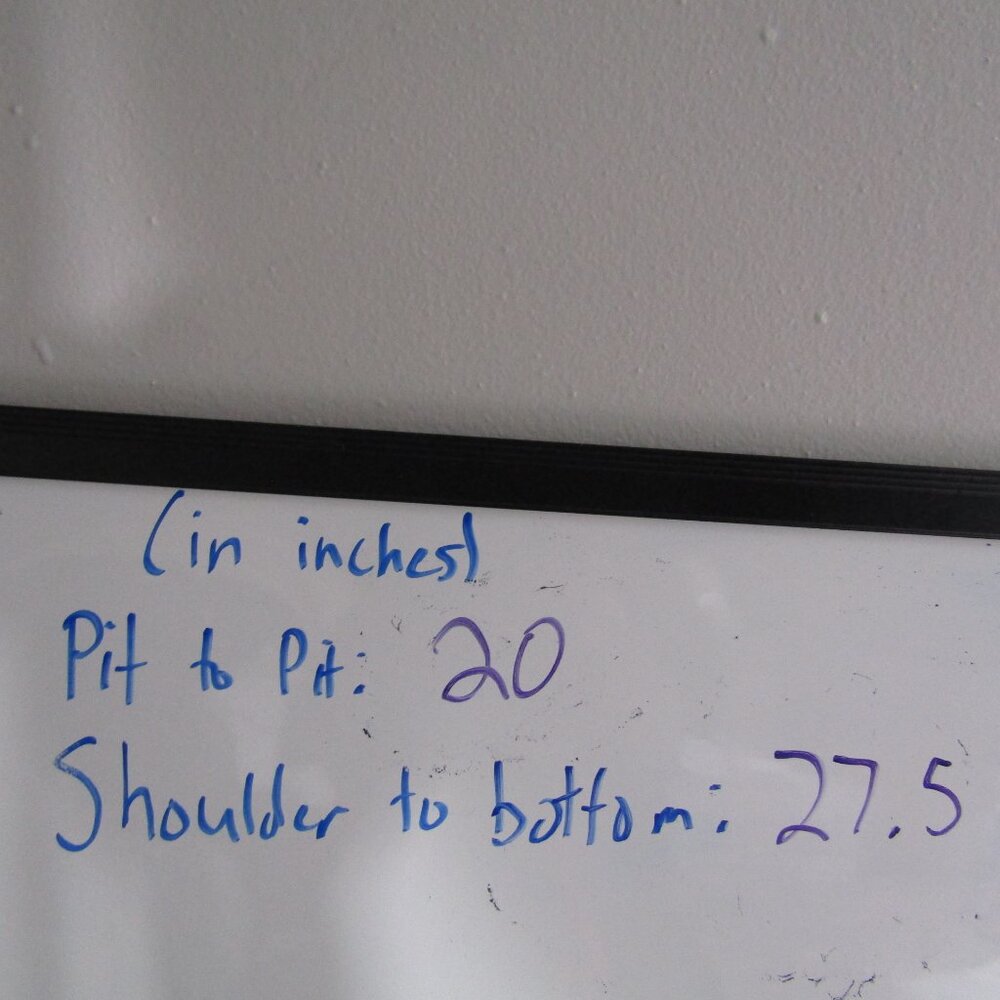 (in inches)
Pit to Pit: 20
Shoulder to bottom: 27.5